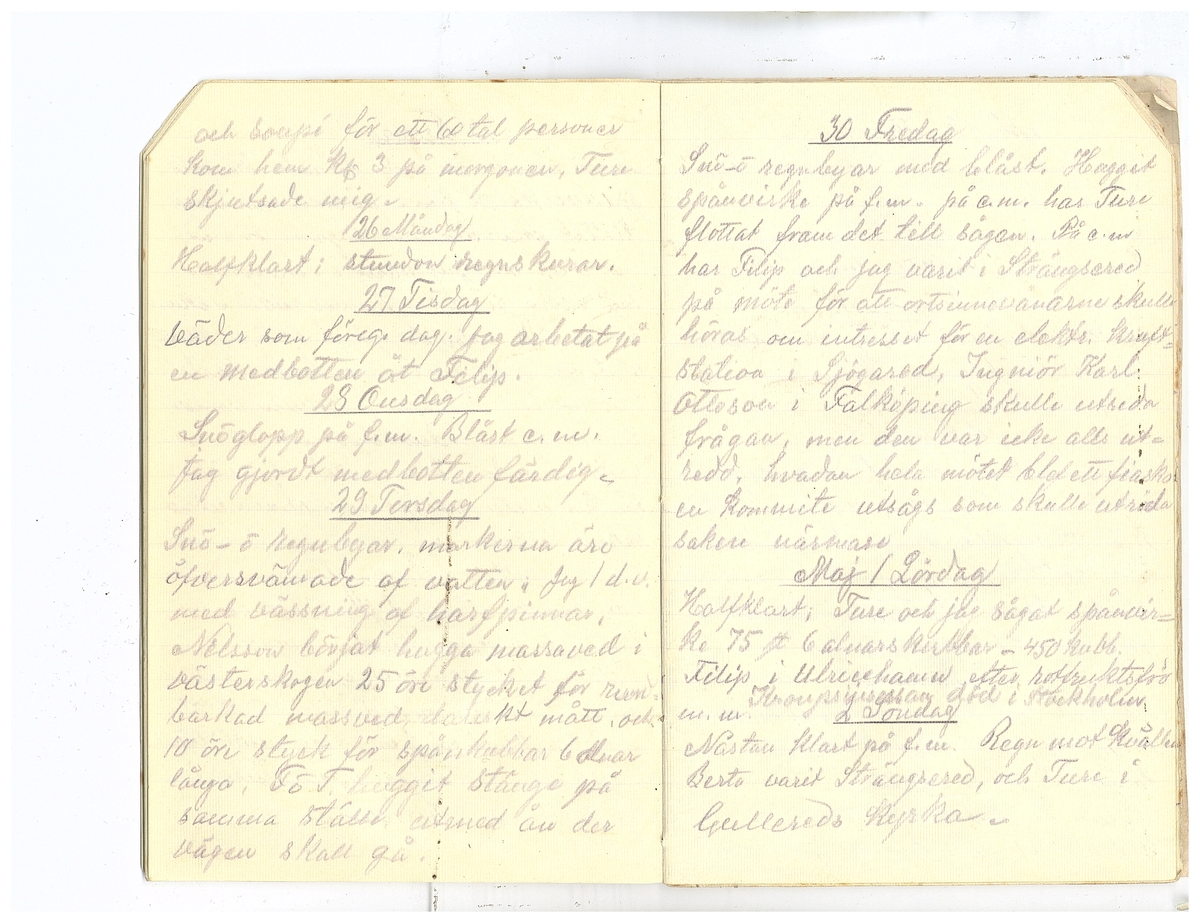 och soupé för ett 60 tal personer
kom hem kl 3 på morgonen, Ture
skjutsade mig.
26 Måndag
Halfklart; stundom regnskurar.
27 Tisdag
Väder som föreg. dag. Jag arbetat på
en medbotten åt Filip.
28 Onsdag
Snöglopp på f.m. Blåst e.m.
Jag gjordt medbotten färdig.
29 Torsdag
Snö- o regnbyar, markerna äro
öfversvämade af vatten. Jag 1 d.v.
med vässning af harfpinnar,
Nelsson börjat hugga massaved i
västerskogen 25 öre stycket för ren-
barkad massved, danskt mått, och
10 öre styck för spånkubbar 6 alnar
långa. F o T. huggit stänge på
samma ställe utmed ån der
vägen skall gå.
30 Fredag
Snö- o regnbyar med blåst. Huggit
spånvirke på f.m. på e.m. har Ture
flottat fram det till sågen. På e.m
har Filip och jag varit i Strängsered
på möte för att ortsinnevånarne skulle
höras om intresset för en elektr. kraft-
station i Sjögared, Ingniör Karl
Ottoson i Falköping skulle utreda
frågan, men den var icke alls ut=
redd, hvadan hela mötet blef ett fiasko
en kommite utsågs som skulle utreda
saken närmare
Maj 1 Lördag
Halfklart; Ture och jag sågat spånvir=
ke 75 st 6 alnarskubbar - 450 kubb.
Filip i Ulricehamn efter rotfruktsfrö
m.m. Kronprinsessan död i Stockholm
2 Söndag
Nästan klart på f.m. Regn mot kvällen
Berta varit Strängsered, och Ture i
Gullereds Kyrka.